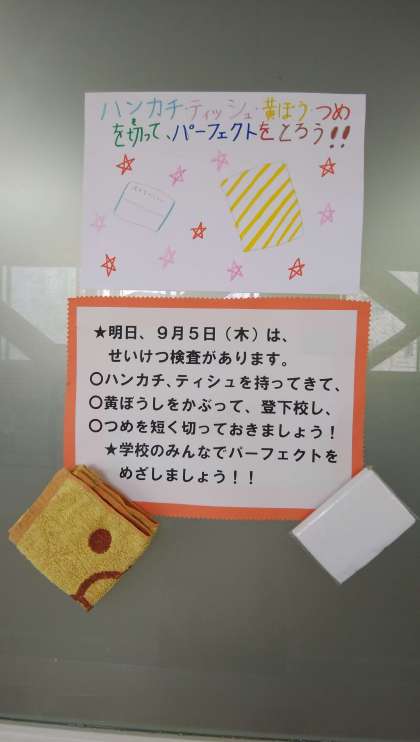 ハンカチ・ティッシュ・黄ぼう・つめ
を切って、パーフェクトをとろう!!
★明日、9月5日（木）は、
せいけつ検査があります。
○ハンカチ、ティシュを持ってきて、
○黄ぼうしをかぶって、登下校し、
○つめを短く切っておきましょう！
★学校のみんなでパーフェクトを
めざしましょう！！